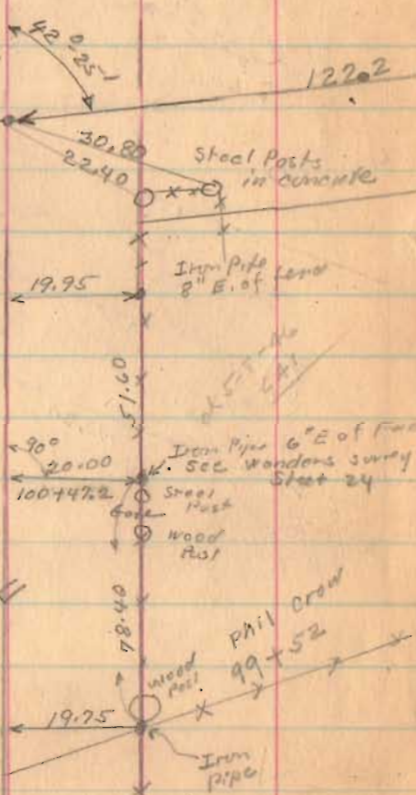 42°-25'
122.2
30.80
22.40
Steel Posts
in concrete
Iron Pipe
8" E. of
19.95
51.60
ok 5-5-46
90°
20.00
100+47.2
Iron Pipe 6" E of Fence
See wonders survey
Sheet 24
Steel
Post
Wood
Post
48.40
Phil Crow
99+52
Wood
Post
19.75
Iron
Pipe